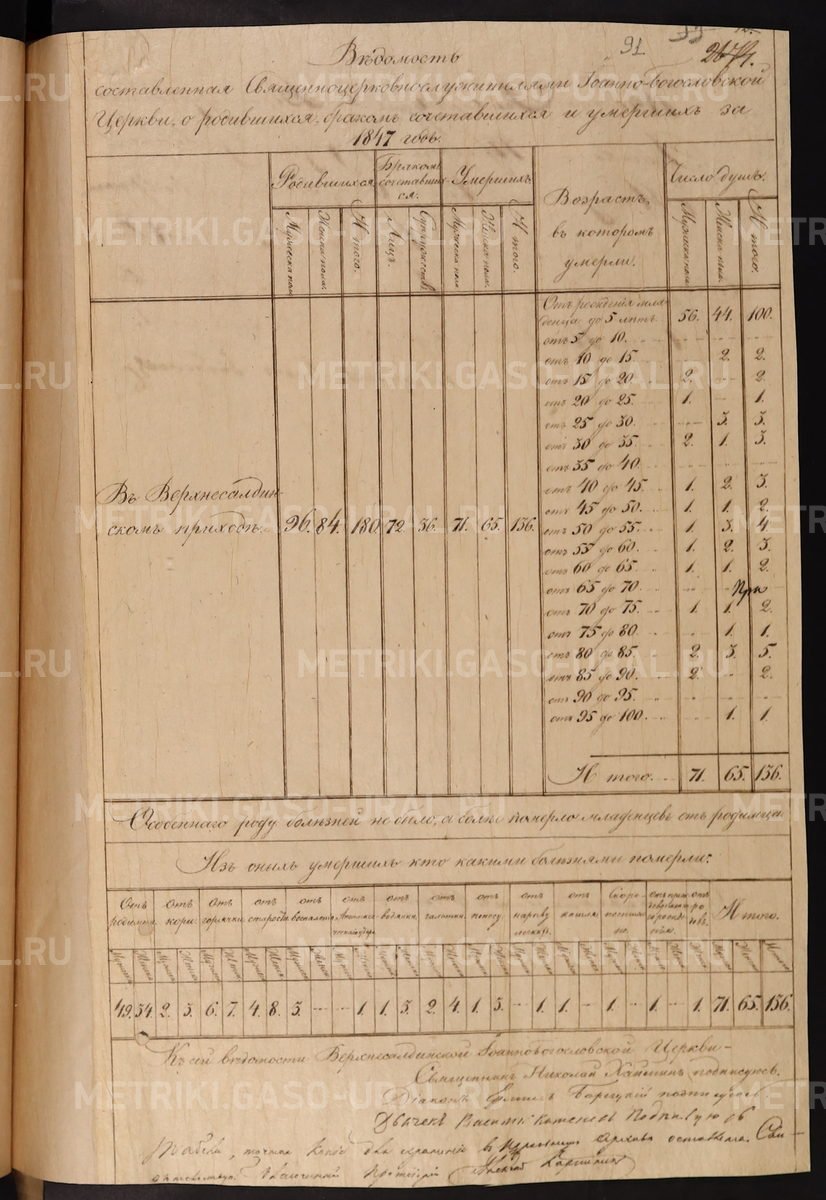 91
Вѣдомость
составленная Священноцерковнослужителями Іоанно-Богословской
Церкви, о родившихся, бракомъ сочетавшихся и умершихъ за
1847 годъ.
Родившихся. Бракомъ сочетавшихся. Умершихъ. Возрастъ, въ которомъ умерли. Число душъ.
Мужеска пола Женска пола. И того. Лицъ. Супружествъ Мужеска пола Женска пола. И того. Мужеска пола. Женска пола. И того.
Въ Верхнесалдин-
скомъ приходѣ. 96. 84. 180. 72. 36. 71. 65. 136.
Отъ рожденія мла-
денца до 5 лѣтъ. 56. 44. 100.
отъ 5 до 10.
отъ 10 до 15 2. 2.
отъ 15 до 20. 2. - 2.
отъ 20 до 25. 1. - 1.
отъ 25 до 30. 3. 3.
отъ 30 до 35. 2. 1. 3.
отъ 35 до 40.
отъ 40 до 45. 1. 2. 3.
отъ 45 до 50. 1. 1. 2.
отъ 50 до 55. 1. 3. 4
отъ 55 до 60. 1. 2. 3.
отъ 60 до 65. 1. 1. 2.
отъ 65 до 70.
отъ 70 до 75. 1. 1. 2.
отъ 75 до 80. 1. 1.
отъ 80 до 85. 2. 3. 5.
отъ 85 до 90. 2. - 2.
отъ 90 до 95.
отъ 95 до 100. 1. 1.
И того. 71. 65. 136.
Особеннаго роду болѣзней не было, а болѣе померло младенцевъ отъ родимца
Изъ оныхъ умершихъ кто какими болѣзнями померли:
Отъ родимца. отъ кори. отъ горячки отъ старости отъ воспаленія отъ отъ водянки. отъ чахотки. отъ поносу. отъ отъ кашля. Скоро-постижно. И того.
49. 34. 2. 3. 6. 7. 4. 8. 3. - - 1. 1. 3. 2. 4. 1. 3. - 1. 1. - 1. - 1. - 1. 71. 65. 136.
Къ сей вѣдомости Верхнесалдинской Іоанно-Богословской Церкви-
Священникъ Николай подписуюсь.
Діаконъ подписуюсь
Дьячекъ Василій подписуюсь
METRIKI.GASO-URAL.RU